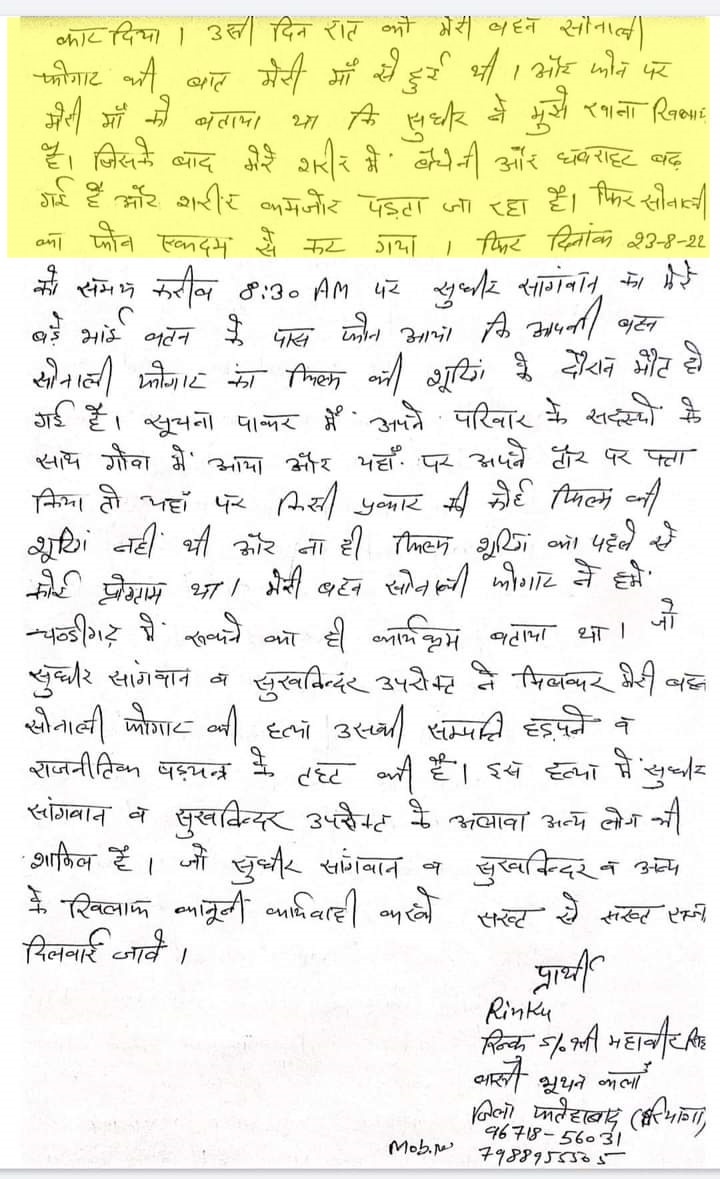 काट दिया । उसी दिन रात को मेरी बहन सोनाली
फोगाट की बात मेरी माँ से हुई थी । और फोन पर
मेरी माँ को बताया था कि सुधीर ने मुझे खाना खिलाया
है। जिसके बाद मेरे शरीर में बेचेनी और घबराहट बढ़
गई है और शरीर कमजोर पड़ता जा रहा है। फिर सोनाली
का फोन एकदम से कट गया । फिर दिनांक 23-8-22
को समय करीब 8:30 AM पर सुधीर सांगवान का मेरे
बड़े भाई वतन के पास फोन आया कि आपकी बहन
सोनाली फोगाट का फिल्म की शूटिंग के दौरान मौत हो
गई है। सूचना पाकर मैं अपने परिवार के सदस्यो के
साथ गोवा में आया और यहाँ पर अपने तौर पर पता
किया तो यहाँ पर किसी प्रकार की कोई फिल्म की
शूटिंग नहीं थी और ना ही फिल्म शूटिंग का पहले से
कोई प्रोग्राम था। मेरी बहन सोनाली फोगाट ने हमें
चण्डीगढ़ में रूकने का ही कार्यक्रम बताया था। जो
सुधीर सांगवान व सुखविन्दर उपरोक्त ने मिलकर मेरी बहन
सोनाली फोगाट की हत्या उसकी सम्पत्ति हड़पने व
राजनीतिक षड़यन्त्र के तहत की है। इस हत्या में सुधीर
सांगवान व सुखविन्दर उपरोक्त के अलावा अन्य लोग भी
शामिल है। जो सुधीर सांगवान व सुखविन्दर व अन्य
के खिलाफ कानूनी कार्यवाही करके सख्त से सख्त सजा
दिलवाई जावे ।
प्रार्थी
Rinku
रिन्कू S/o श्री महावीर सिंह
वासी भूथन कलां
जिला फतेहाबाद (हरियाणा)
96718-56031
Mob.no 7988955505